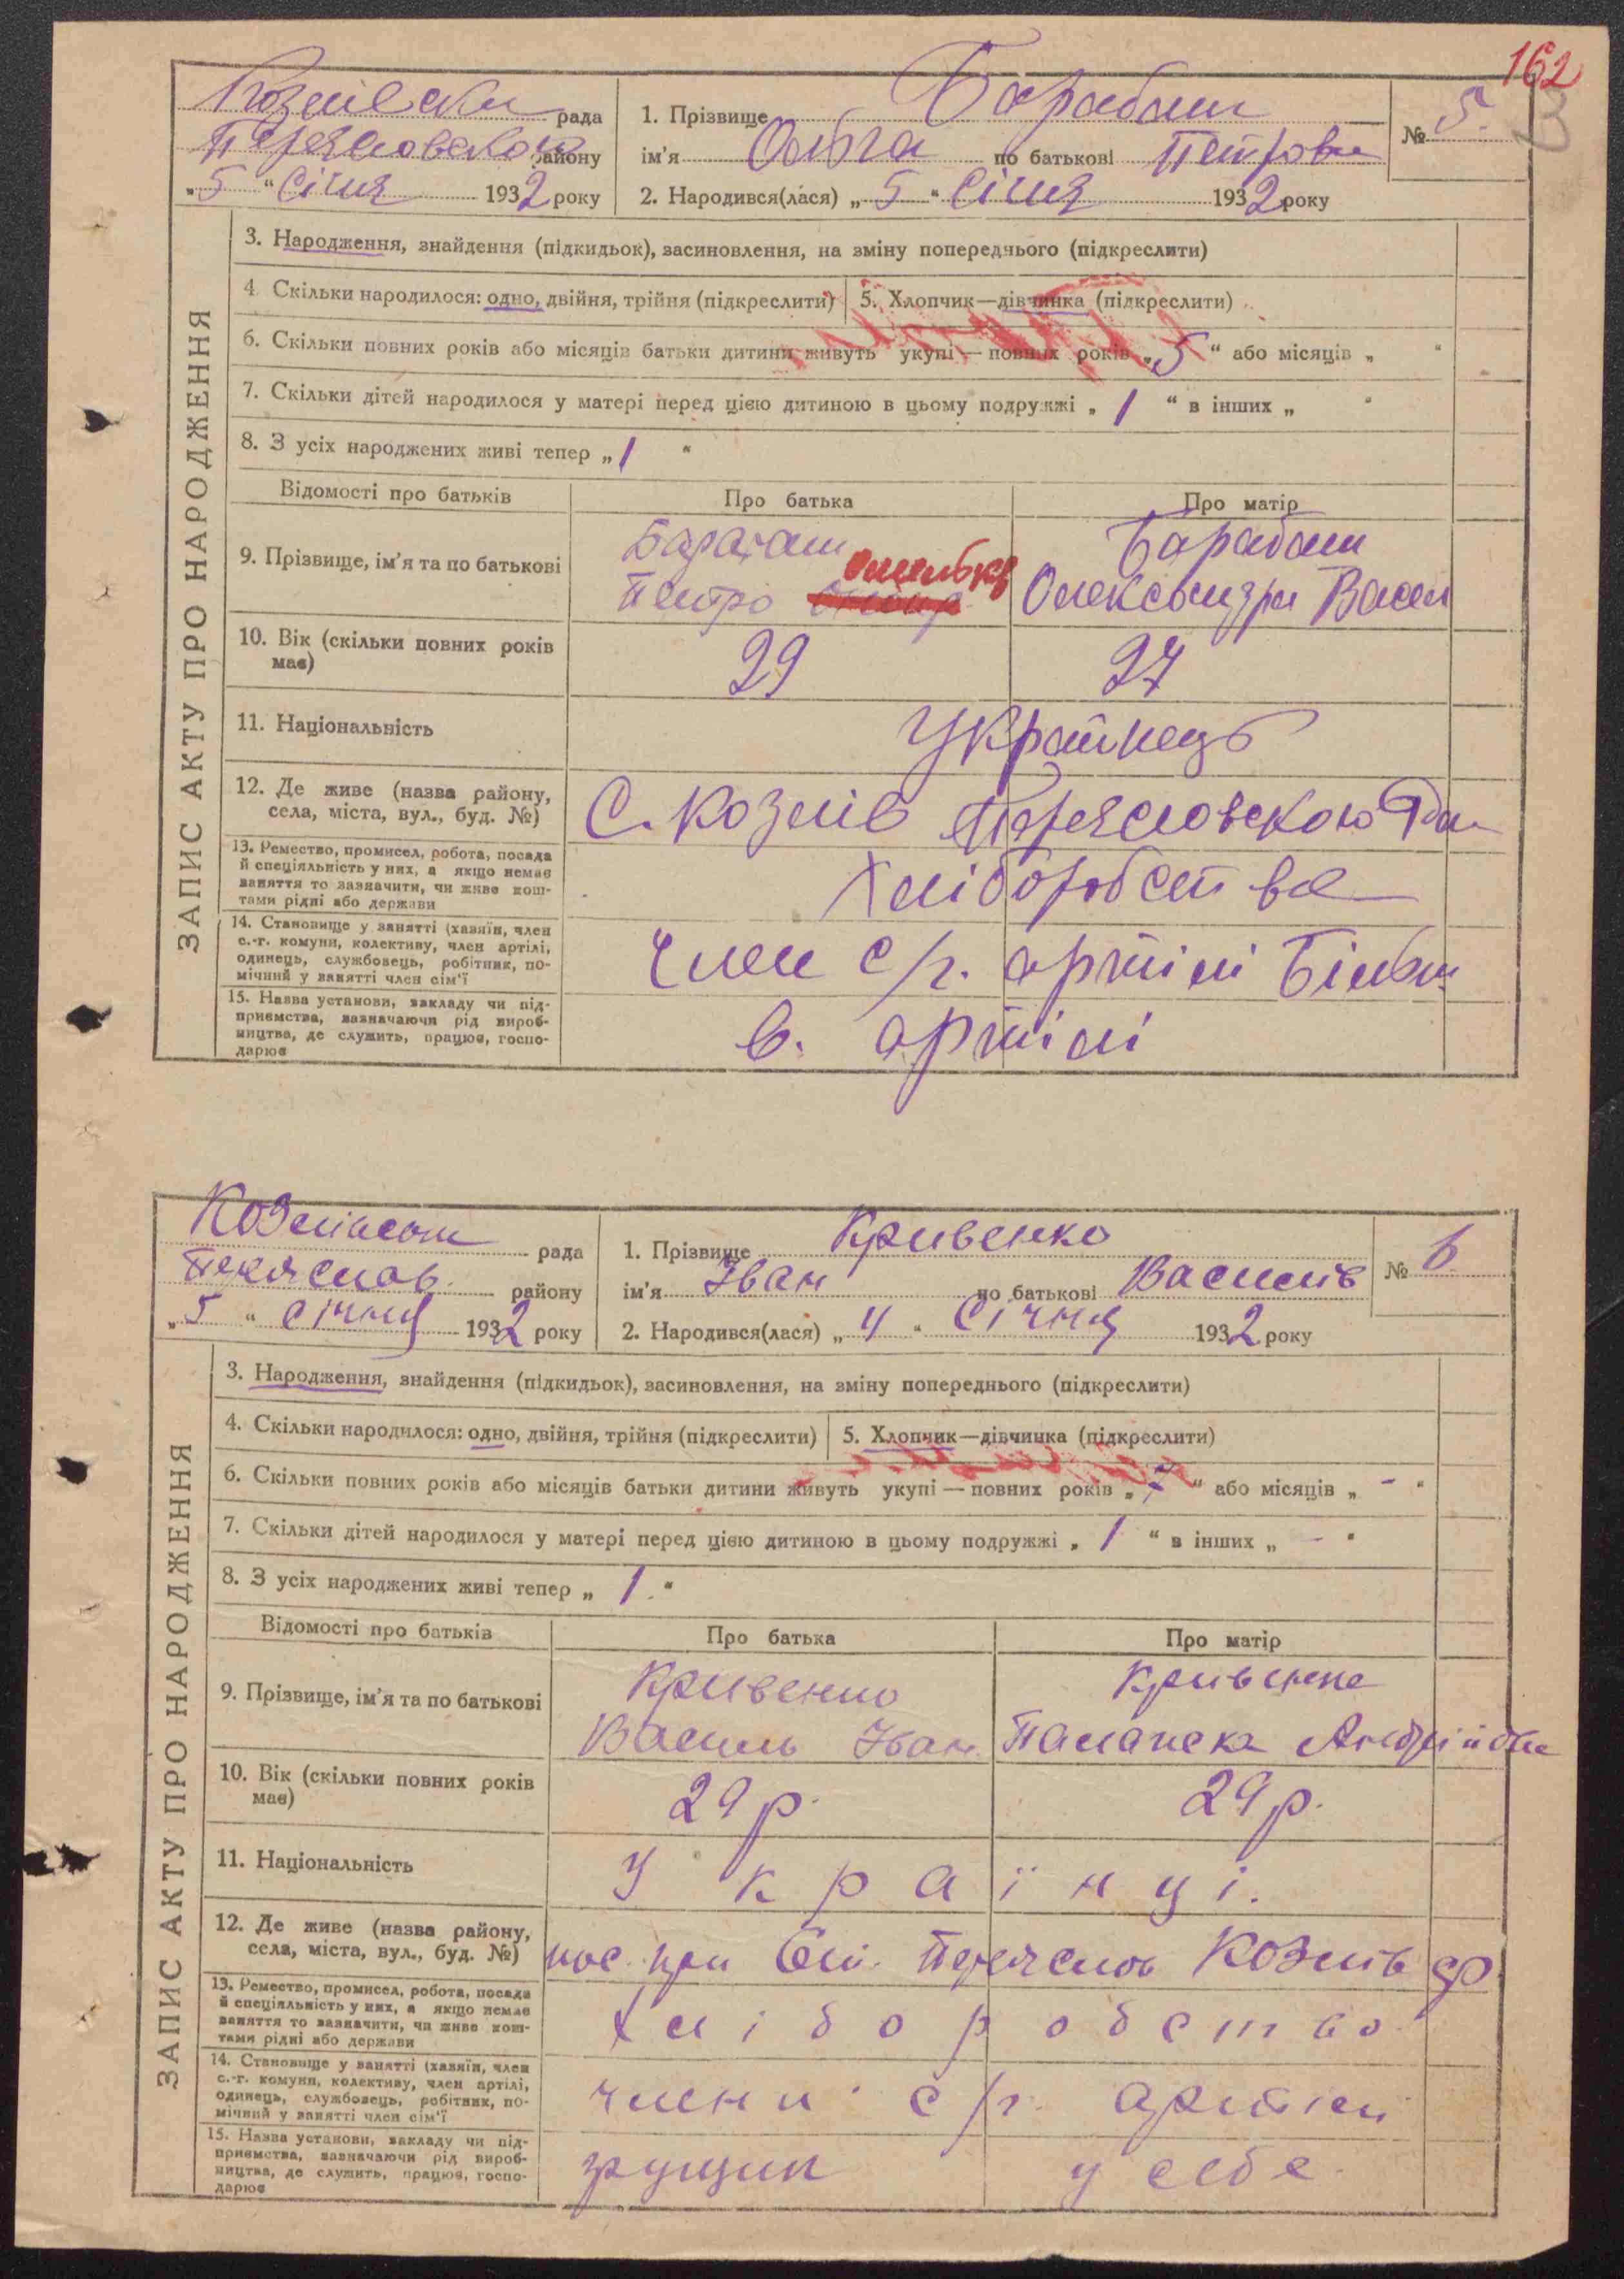 162
Козлівськ рада
Переясловського району
„5“ Січня 1932 року
1. Прізвище Барабаш
ім'я Ольга по батькові Петровн
2. Народився(лася) „5“ Січня 1932 року
№ 5.
ЗАПИС АКТУ ПРО НАРОДЖЕННЯ
3. Народження, знайдення (підкидьок), засиновлення, на зміну попереднього (підкреслити)
4. Скільки народилося: одно, двійня, трійня (підкреслити)
5. Хлопчик—дівчинка (підкреслити)
6. Скільки повних років або місяців батьки дитини живуть укупі — повних років „5“ або місяців „ “
7. Скільки дітей народилося у матері перед цією дитиною в цьому подружжі „1“ в інших „ “
8. З усіх народжених живі тепер „1“
Відомості про батьків
Про батька
Про матір
9. Прізвище, ім'я та по батькові
Барабаш
Петро Омелькв
Барабаш
Олександра Васил
10. Вік (скільки повних років
має)
29
27
11. Національність
Українець
12. Де живе (назва району,
села, міста, вул., буд. №)
С. Козлів Переясловського Рай
13. Ремество, промисел, робота, посада
й спеціяльність у них, а якщо немає
заняття то зазначити, чи живе кош-
тами рідні або держави
Хліборобство
14. Становище у занятті (хазяїн, член
с.-г. комуни, колективу, член артілі,
одинець, службовець, робітник, по-
мічний у занятті член сім'ї
Член с/г. артілі Більш
15. Назва установи, закладу чи під-
приємства, зазначаючи рід вироб-
ництва, де служить, працює, госпо-
дарює
в. артілі
Козлівська рада
Переяслов. району
„5“ січня 1932 року
1. Прізвище Кривенко
ім'я Іван по батькові Василів
2. Народився(лася) „4“ Січня 1932 року
№ 6.
ЗАПИС АКТУ ПРО НАРОДЖЕННЯ
3. Народження, знайдення (підкидьок), засиновлення, на зміну попереднього (підкреслити)
4. Скільки народилося: одно, двійня, трійня (підкреслити)
5. Хлопчик—дівчинка (підкреслити)
6. Скільки повних років або місяців батьки дитини живуть укупі — повних років „7“ або місяців „-“
7. Скільки дітей народилося у матері перед цією дитиною в цьому подружжі „1“ в інших „-“
8. З усіх народжених живі тепер „1.“
Відомості про батьків
Про батька
Про матір
9. Прізвище, ім'я та по батькові
Кривенко
Василь Іван.
Кривенко
Палажка Андрійовна
10. Вік (скільки повних років
має)
29 р.
29 р.
11. Національність
Українці.
12. Де живе (назва району,
села, міста, вул., буд. №)
пос. при Переяслов Козлів ср.
13. Ремество, промисел, робота, посада
й спеціяльність у них, а якщо немає
заняття то зазначити, чи живе кош-
тами рідні або держави
Хліборобство
14. Становище у занятті (хазяїн, член
с.-г. комуни, колективу, член артілі,
одинець, службовець, робітник, по-
мічний у занятті член сім'ї
члени с/г. артілі
15. Назва установи, закладу чи під-
приємства, зазначаючи рід вироб-
ництва, де служить, працює, госпо-
дарює
у себе.